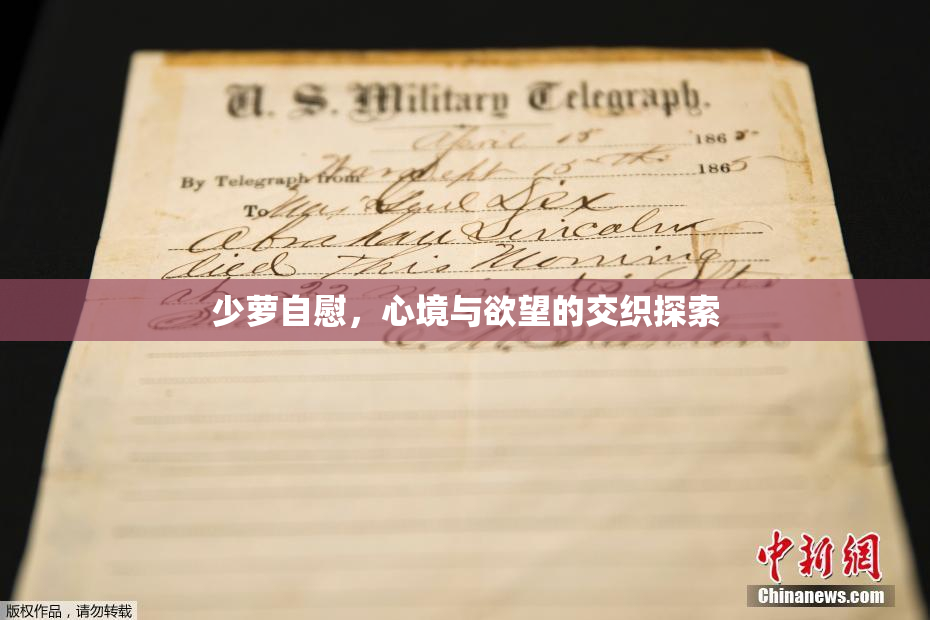 U. S. Military Telegraph.
April 15 1865
By Telegraph from War Dept 15th 1865
To Maj Genl Dix
Abraham Lincoln
died This Morning
at 22 minutes after
少萝自慰，心境与欲望的交织探索
E. M. Stanton
中新网
Chinanews.com
版权作品，请勿转载